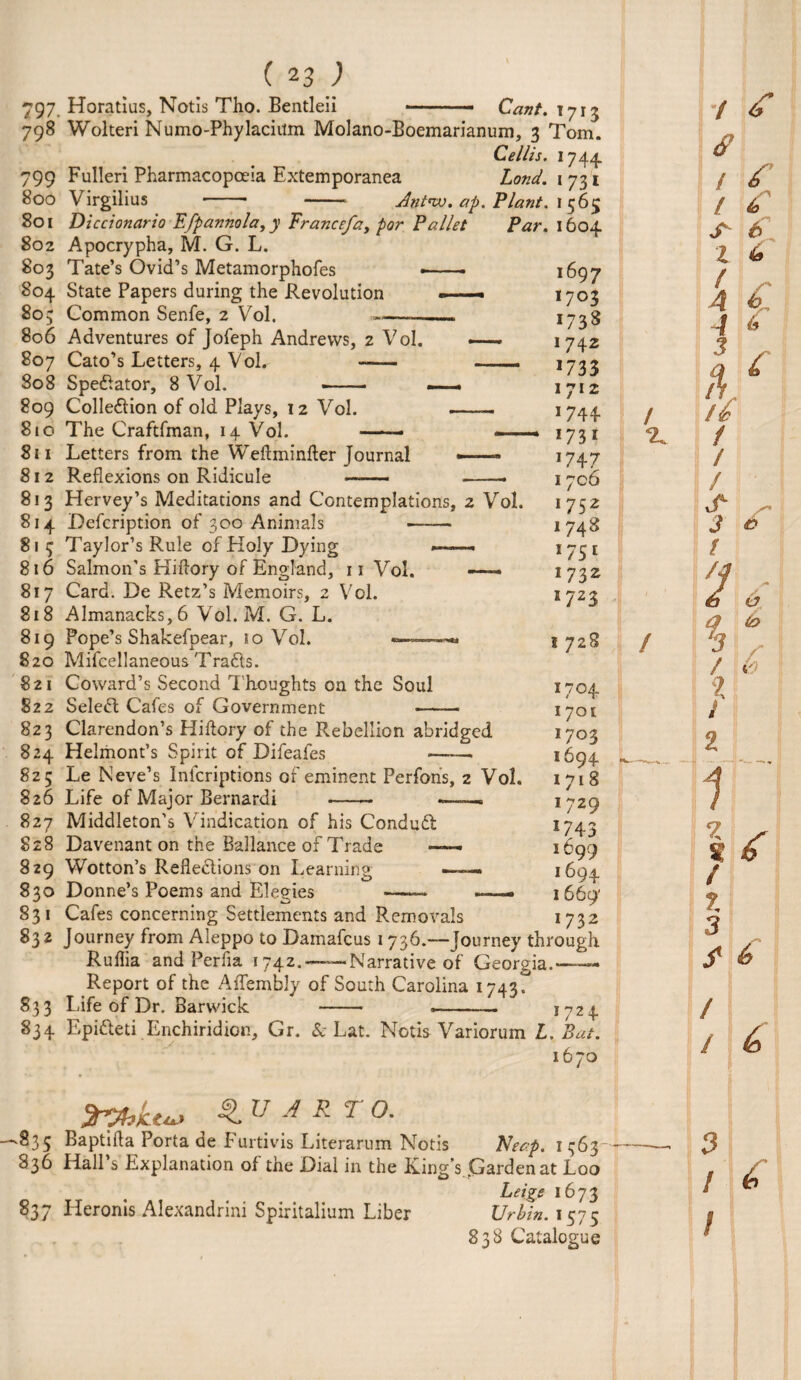 ( 23 )
797. Horatius, Notis Tho. Bentleii —— Cant. 1713 1 6
798 Wolteri Numo-Phylaciūm Molano-Boemarianum, 3 Tom.
Cellis. 1744 8
799 Fulleri Pharmacopœia Extemporanea Lond. 1731 1 6
800 Virgilius —— —— Antw. ap. Plant. 1565 1 6
801 Diccionario Eſpannola, y Franceſa, por Pallet Par. 1604 5 6
802 Apocrypha, M. G. L. 2 6
803 Tate's Ovid's Metamorphoſes —— 1697 1
804 State Papers during the Revolution —— 1703 4 6
805 Common Senſe, 2 Vol. —— 1738 4 6
806 Adventures of Joſeph Andrews, 2 Vol. —— 1742 3
807 Cato's Letters, 4 Vol. —— —— 1733 9 6
808 Spectator, 8 Vol. —— —— 1712
809 Collection of old Plays, 12 Vol. —— 1744 1 16
810 The Craftſman, 14 Vol. —— —— 1731 2 1
811 Letters from the Weſtminſter Journal —— 1747 1
812 Reflexions on Ridicule —— —— 1706 1
813 Hervey's Meditations and Contemplations, 2 Vol. 1752 5
814 Deſcription of 300 Animals —— 1748 3 6
815 Taylor's Rule of Holy Dying —— 1751 1
816 Salmon's Hiſtory of England, 11 Vol. —— 1732
817 Card. De Retz's Memoirs, 2 Vol. 1723 6
818 Almanacks, 6 Vol. M. G. L. 6
819 Pope's Shakeſpear, 10 Vol. —— 1728 1 3
820 Miſcellaneous Tracts. 1 6
821 Coward's Second Thoughts on the Soul 1704 2
822 Select Caſes of Government —— 1701 1
823 Clarendon's Hiſtory of the Rebellion abridged 1703 2
824 Helmont's Spirit of Diſeaſes —— 1694
825 Le Neve's Inſcriptions of eminent Perſons, 2 Vol. 1718 4
826 Life of Major Bernardi —— —— 1729 1
827 Middleton's Vindication of his Conduct 1743 2
828 Davenant on the Ballance of Trade —— 1699 6
829 Wotton's Reflections on Learning —— 1694 1
830 Donne's Poems and Elegies —— —— 1669 2
831 Caſes concerning Settlements and Removals 1732 3
832 Journey from Aleppo to Damaſcus 1736.—Journey through
Ruſſia and Perſia 1742.——Narrative of Georgia.—— 5 6
Report of the Aſſembly of South Carolina 1743.
833 Life of Dr. Barwick —— —— 1724 1
834 Epicteti Enchiridion, Gr. & Lat. Notis Variorum L. Bat. 1 6
1670
QUARTO.
835 Baptiſta Porta de Furtivis Literarum Notis Neap. 1563 —— 3
836 Hall's Explanation of the Dial in the King's Garden at Loo
Leige 1673 1 6
837 Heronis Alexandrini Spiritalium Liber Urbin. 1575 1
838 Catalogue